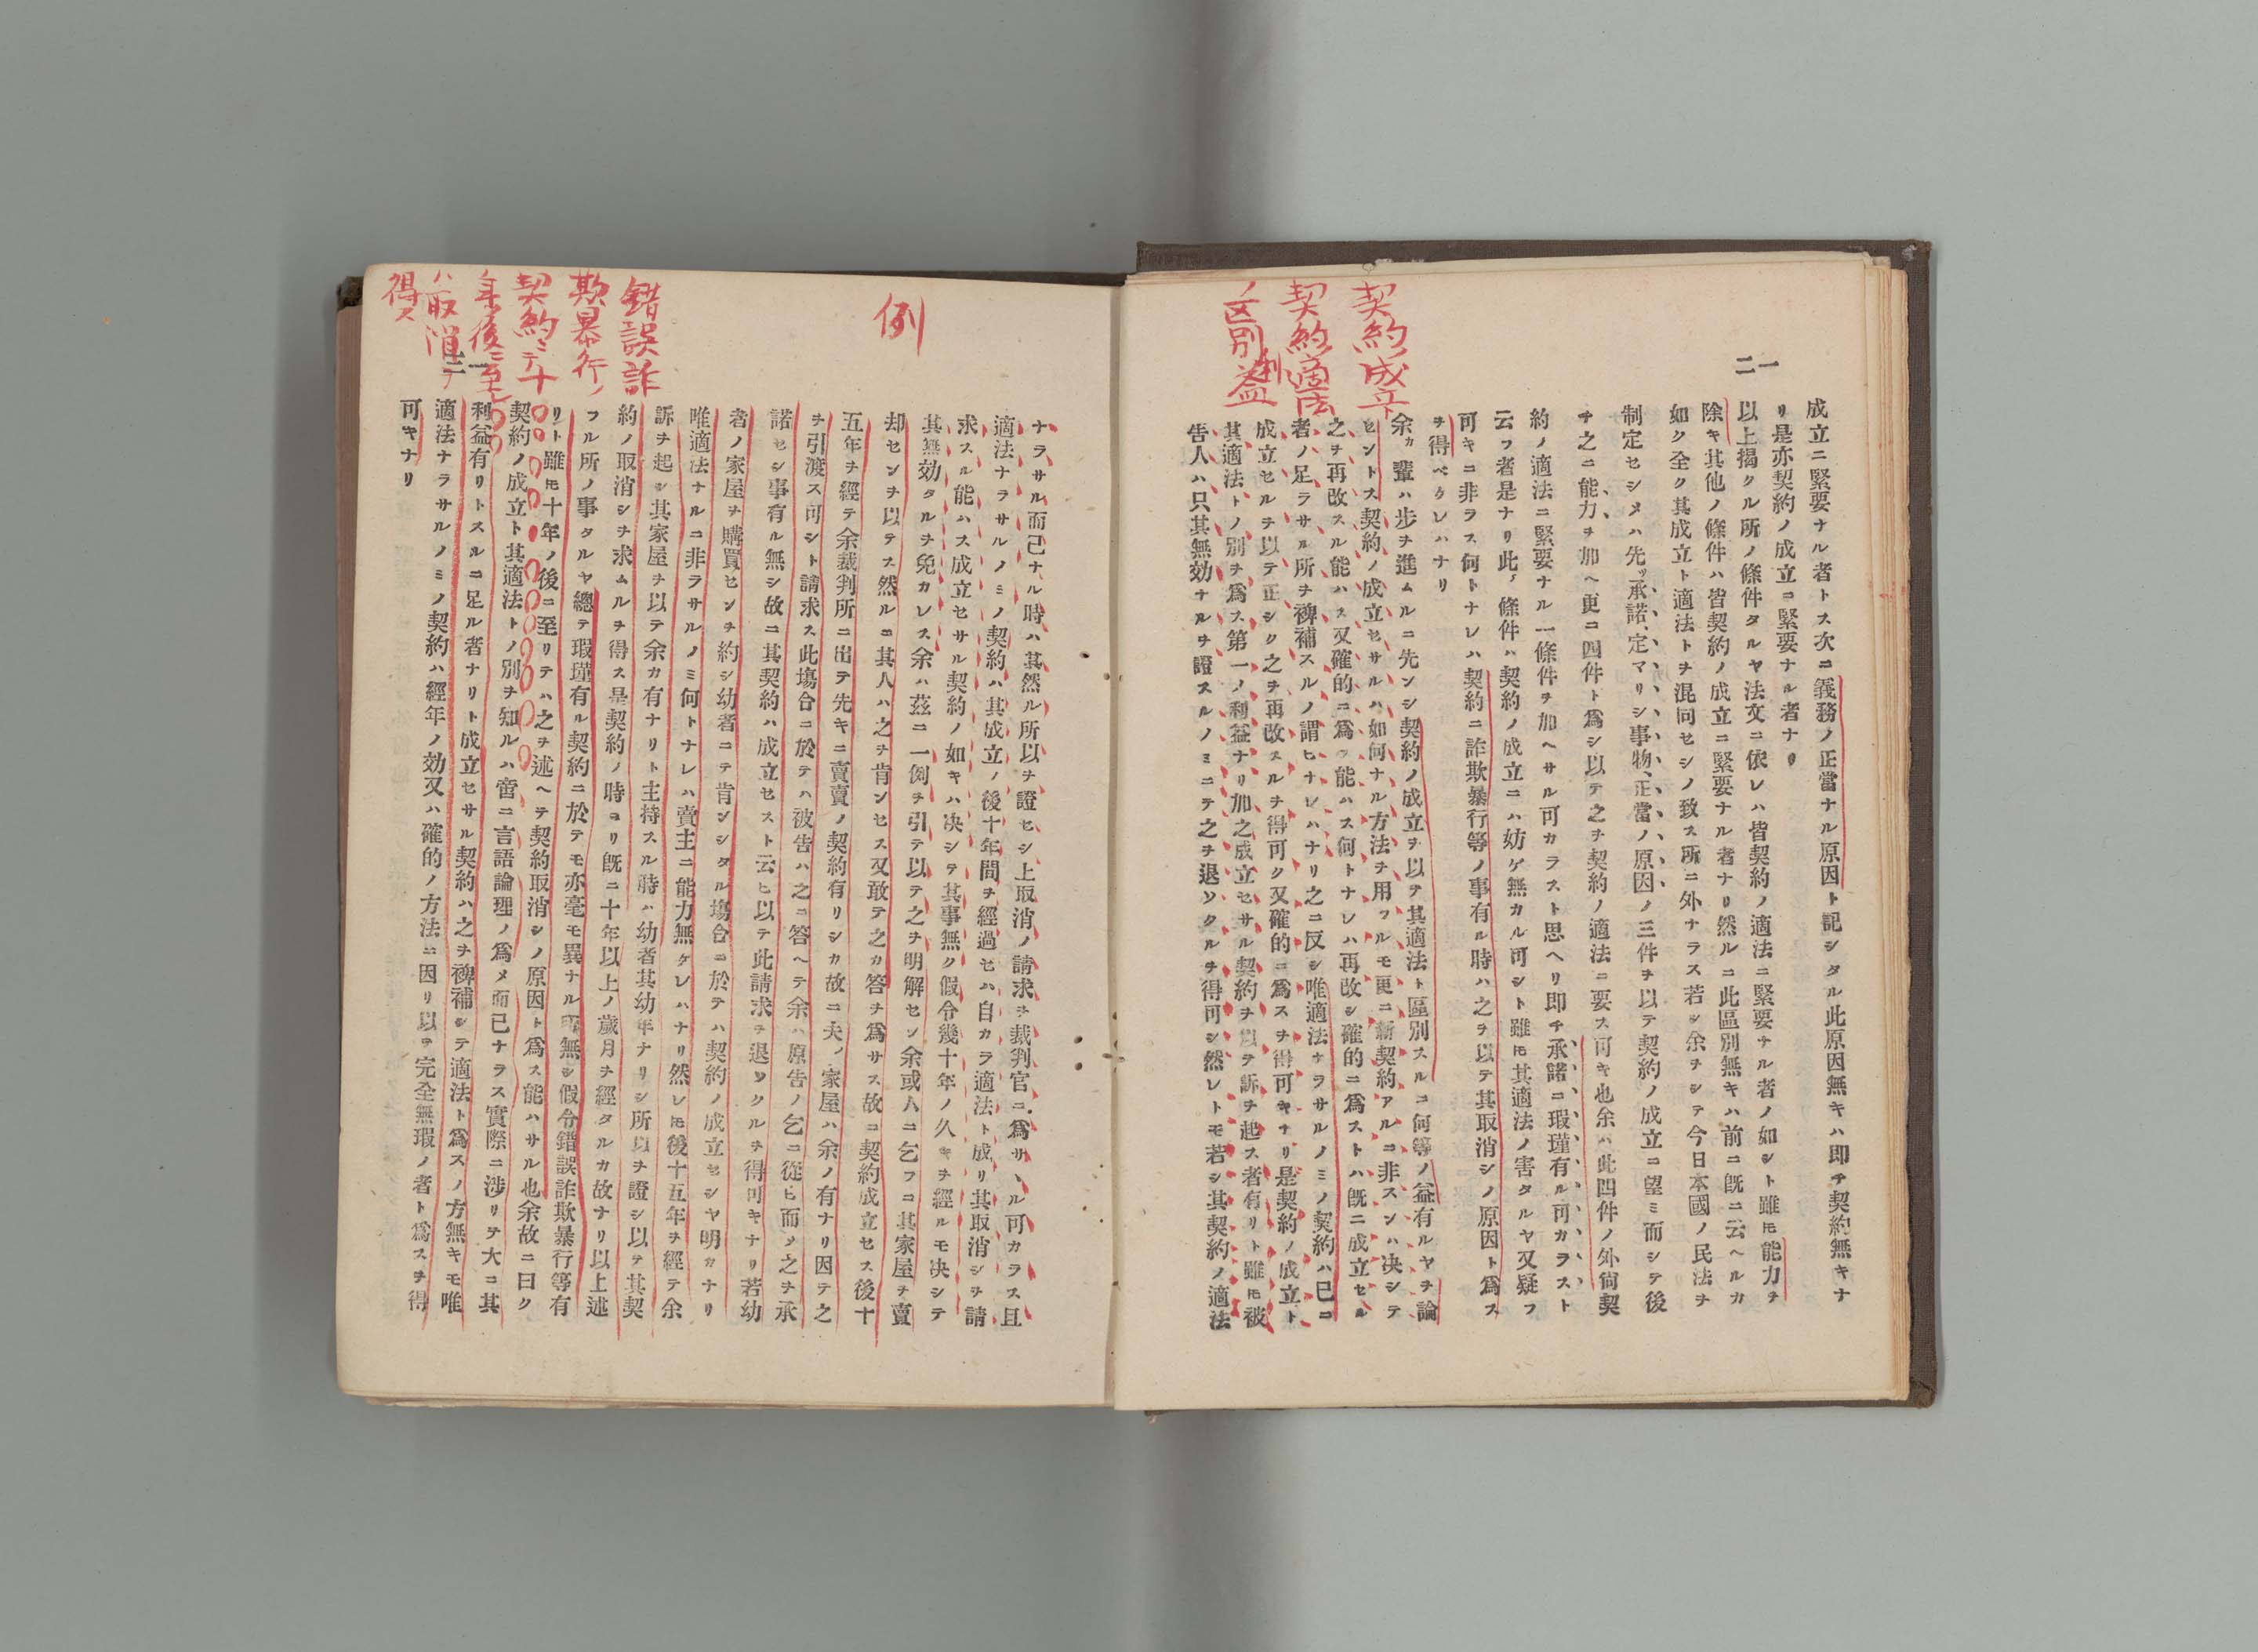 契約成立
契約適法
ノ区別
利益
一二
成立ニ緊要ナル者トス次ニ義務ノ正當ナル原因ト記シタル此原因無キハ即チ契約無キナ
リ是亦契約ノ成立ニ緊要ナル者ナリ
以上掲クル所ノ條件タルヤ法文ニ依レハ皆契約ノ適法ニ緊要ナル者ノ如シト雖𪜈能力ヲ
除キ其他ノ條件ハ皆契約ノ成立ニ緊要ナル者ナリ然ルニ此區別無キハ前ニ既ニ云ヘルカ
如ク全ク其成立ト適法トヲ混同セシノ致ス所ニ外ナラス若シ余ヲシテ今日本國ノ民法ヲ
制定セシメハ先ッ承諾、定マリシ事物、正當ノ原因ノ三件ヲ以テ契約ノ成立ニ望ミ而シテ後
チ之ニ能力ヲ加ヘ更ニ四件ト爲シ以テ之ヲ契約ノ適法ニ要ス可キ也余ハ此四件ノ外尙契
約ノ適法ニ緊要ナル一條件ヲ加ヘサル可カラスト思ヘリ即チ承諾ニ瑕瑾有ル可カラスト
云フ者是ナリ此ノ條件ハ契約ノ成立ニハ妨ケ無カル可シト雖𪜈其適法ノ害タルヤ又疑フ
可キニ非ラス何トナレハ契約ニ詐欺暴行等ノ事有ル時ハ之ヲ以テ其取消シノ原因ト爲ス
ヲ得ベケレハナリ
余カ輩ハ步ヲ進ムルニ先ンシ契約ノ成立ヲ以テ其適法ト區別スルニ何等ノ益有ルヤヲ論
セントス契約ノ成立セサルハ如何ナル方法ヲ用フルモ更ニ新契約アルニ非スンハ决シテ
之ヲ再改スル能ハス又確的ニ爲ス能ハス何トナレハ再改シ確的ニ爲ストハ既ニ成立セル
者ノ足ラサル所ヲ裨補スルノ謂ヒナレハナリ之ニ反シ唯適法ナラサルノミノ契約ハ已ニ
成立セルヲ以テ正シク之ヲ再改スルヲ得可ク又確的ニ爲スヲ得可キナリ是契約ノ成立ト
其適法トノ別ヲ爲ス第一ノ利益ナリ加之成立セサル契約ヲ以テ訴ヲ起ス者有リト雖𪜈被
告人ハ只其無効ナルヲ證スルノミニテ之ヲ退ソクルヲ得可シ然レトモ若シ其契約ノ適法
例
錯誤詐
欺暴行ノ
契約ニテ十
年後ニ至レ
ハ取消ヲ
得ス
一三
ナラサル而己ナル時ハ其然ル所以ヲ證セシ上取消ノ請求ヲ裁判官ニ爲サヽル可カラス且
適法ナラサルノミノ契約ハ其成立ノ後十年間ヲ經過セハ自カラ適法ト成リ其取消シヲ請
求スル能ハス成立セサル契約ノ如キハ决シテ其事無ク假令幾十年ノ久キヲ經ルモ决シテ
其無効タルヲ免カレス余ハ茲ニ一例ヲ引テ以テ之ヲ明解セン余或人ニ乞フニ其家屋ヲ賣
却センヲ以テス然ルニ其人ハ之ヲ肯ンセス又敢テ之カ答ヲ爲サス故ニ契約成立セス後十
五年ヲ經テ余裁判所ニ出テ先キニ賣賣ノ契約有リシカ故ニ夫ノ家屋ハ余ノ有ナリ因テ之
ヲ引渡ス可シト請求ス此塲合ニ於テハ被告ハ之ニ答ヘテ余ハ原告ノ乞ニ從ヒ而メ之ヲ承
諾セシ事有ル無シ故ニ其契約ハ成立セスト云ヒ以テ此請求ヲ退ソクルヲ得可キナリ若幼
者ノ家屋ヲ購買センヲ約シ幼者ニテ肯ンシタル塲合ニ於テハ契約ノ成立セシヤ明カナリ
唯適法ナルニ非ラサルノミ何トナレハ賣主ニ能力無ケレハナリ然レ𪜈後十五年ヲ經テ余
訴ヲ起シ其家屋ヲ以テ余カ有ナリト主持スル時ハ幼者其幼年ナリシ所以ヲ證シ以テ其契
約ノ取消シヲ求ムルヲ得ス是契約ノ時ヨリ既ニ十年以上ノ歲月ヲ經タルカ故ナリ以上述
フル所ノ事タルヤ總テ瑕瑾有ル契約ニ於テモ亦毫モ異ナル事無シ假令錯誤詐欺暴行等有
リト雖𪜈十年ノ後ニ至リテハ之ヲ述ヘテ契約取消シノ原因ト爲ス能ハサル也余故ニ曰ク
契約ノ成立ト其適法トノ別ヲ知ルハ啻ニ言語論理ノ爲メ而己ナラス實際ニ涉リテ大ニ其
利益有リトスルニ足ル者ナリト成立セサル契約ハ之ヲ裨補シテ適法ト爲スノ方無キモ唯
適法ナラサルノミノ契約ハ經年ノ効又ハ確的ノ方法ニ因リ以テ完全無瑕ノ者ト爲スヲ得
可キナリ